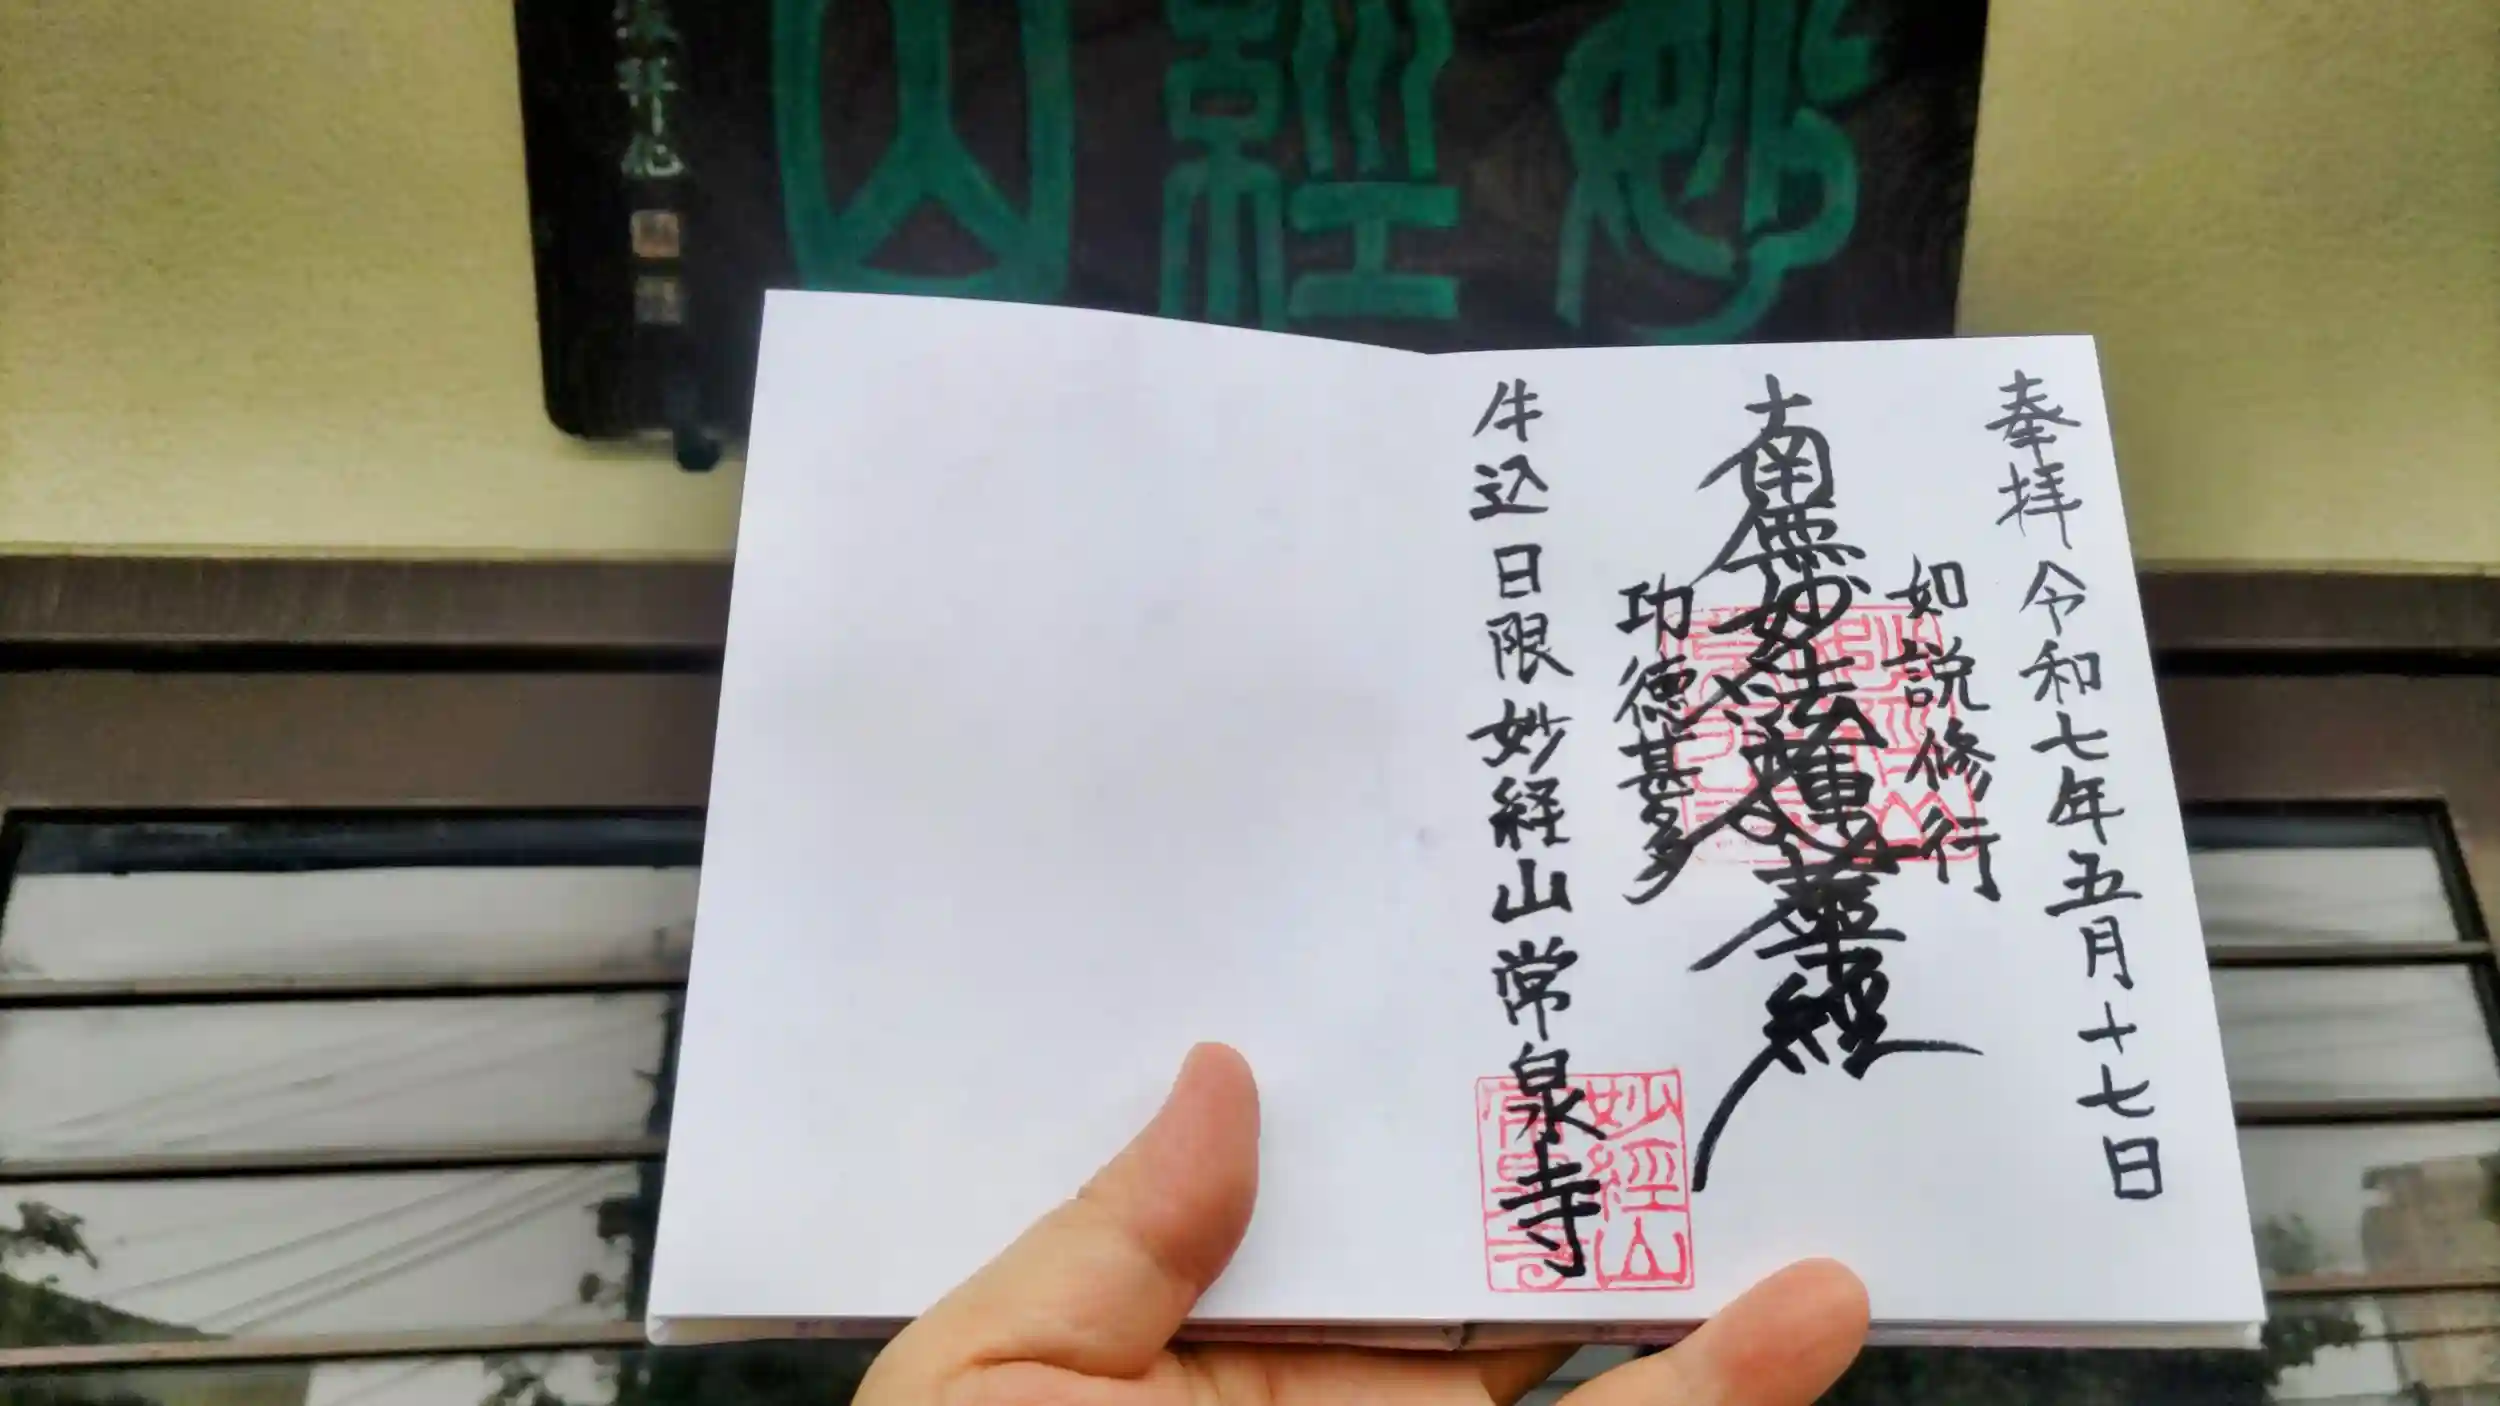 妙經山
奉拝 令和七年五月十七日
如説修行
南無妙法蓮華經
功徳甚多
牛込日限妙経山常泉寺
妙經山
常泉寺